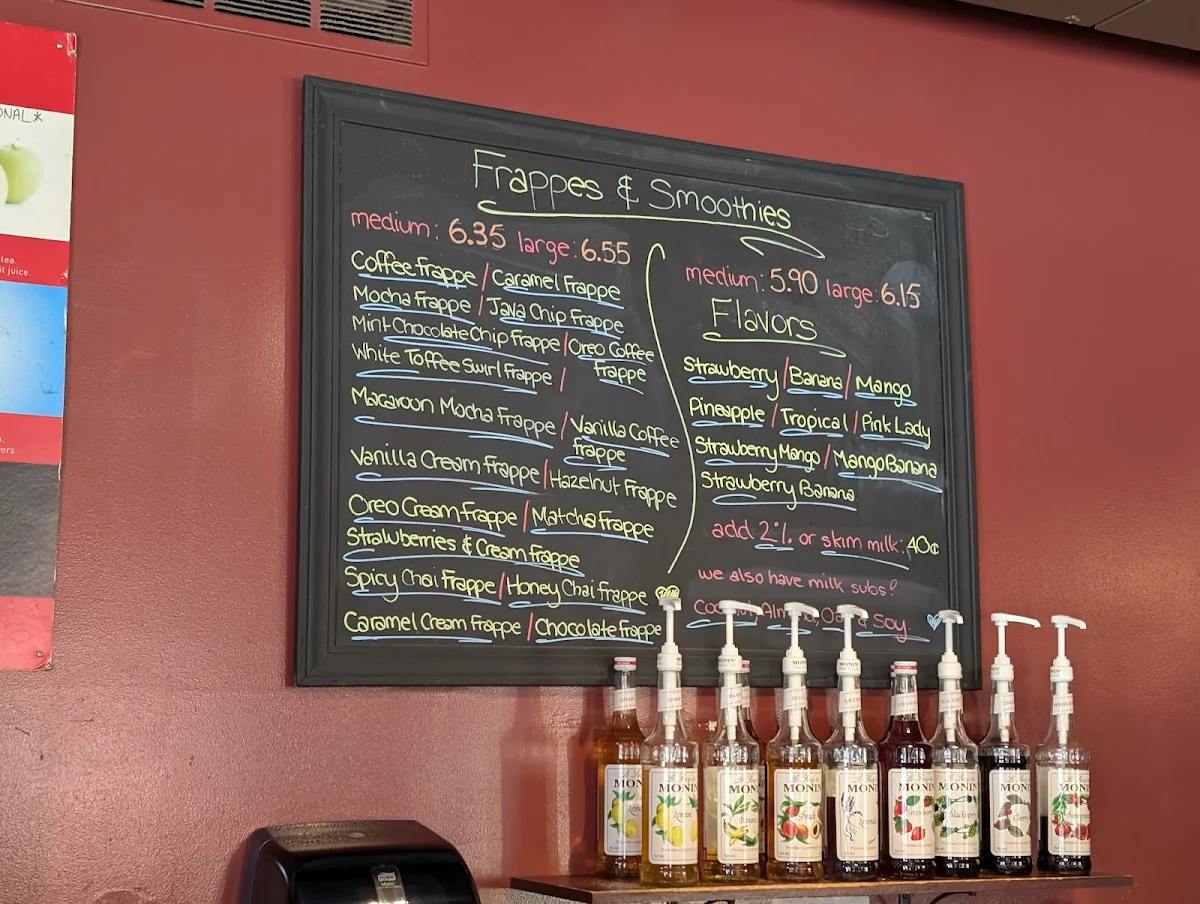 ONAL*
tea.
it juice.
Frappes & Smoothies
medium: 6.35 large: 6.55
Coffee Frappe / Caramel Frappe
Mocha Frappe / Java Chip Frappe
Mint Chocolate Chip Frappe / Oreo Coffee
Frappe
White Toffee Swirl Frappe /
Macaroun Mocha Frappe / Vanilla Coffee
Frappe
Vanilla Cream Frappe / Hazelnut Frappe
Oreo Cream Frappe / Matcha Frappe
Strawberries & Cream Frappe
Spicy Chai Frappe / Honey Chai Frappe
Caramel Cream Frappe / Chocolate Frappe
medium: 5.90 large: 6.15
Flavors
Strawberry / Banana / Mango
Pineapple / Tropical / Pink Lady
Strawberry Mango / Mango Banana
Strawberry Banana
add 2% or skim milk: 40¢
we also have milk subs!
Coconut, Almond, Oat & Soy.
MONIN
MONIN
Lemon
MONIN
Banana
MONIN
Peach
MONIN
MONIN
Strawberry
MONIN
Blackberry
MONIN
Cherry
MONIN
TORK